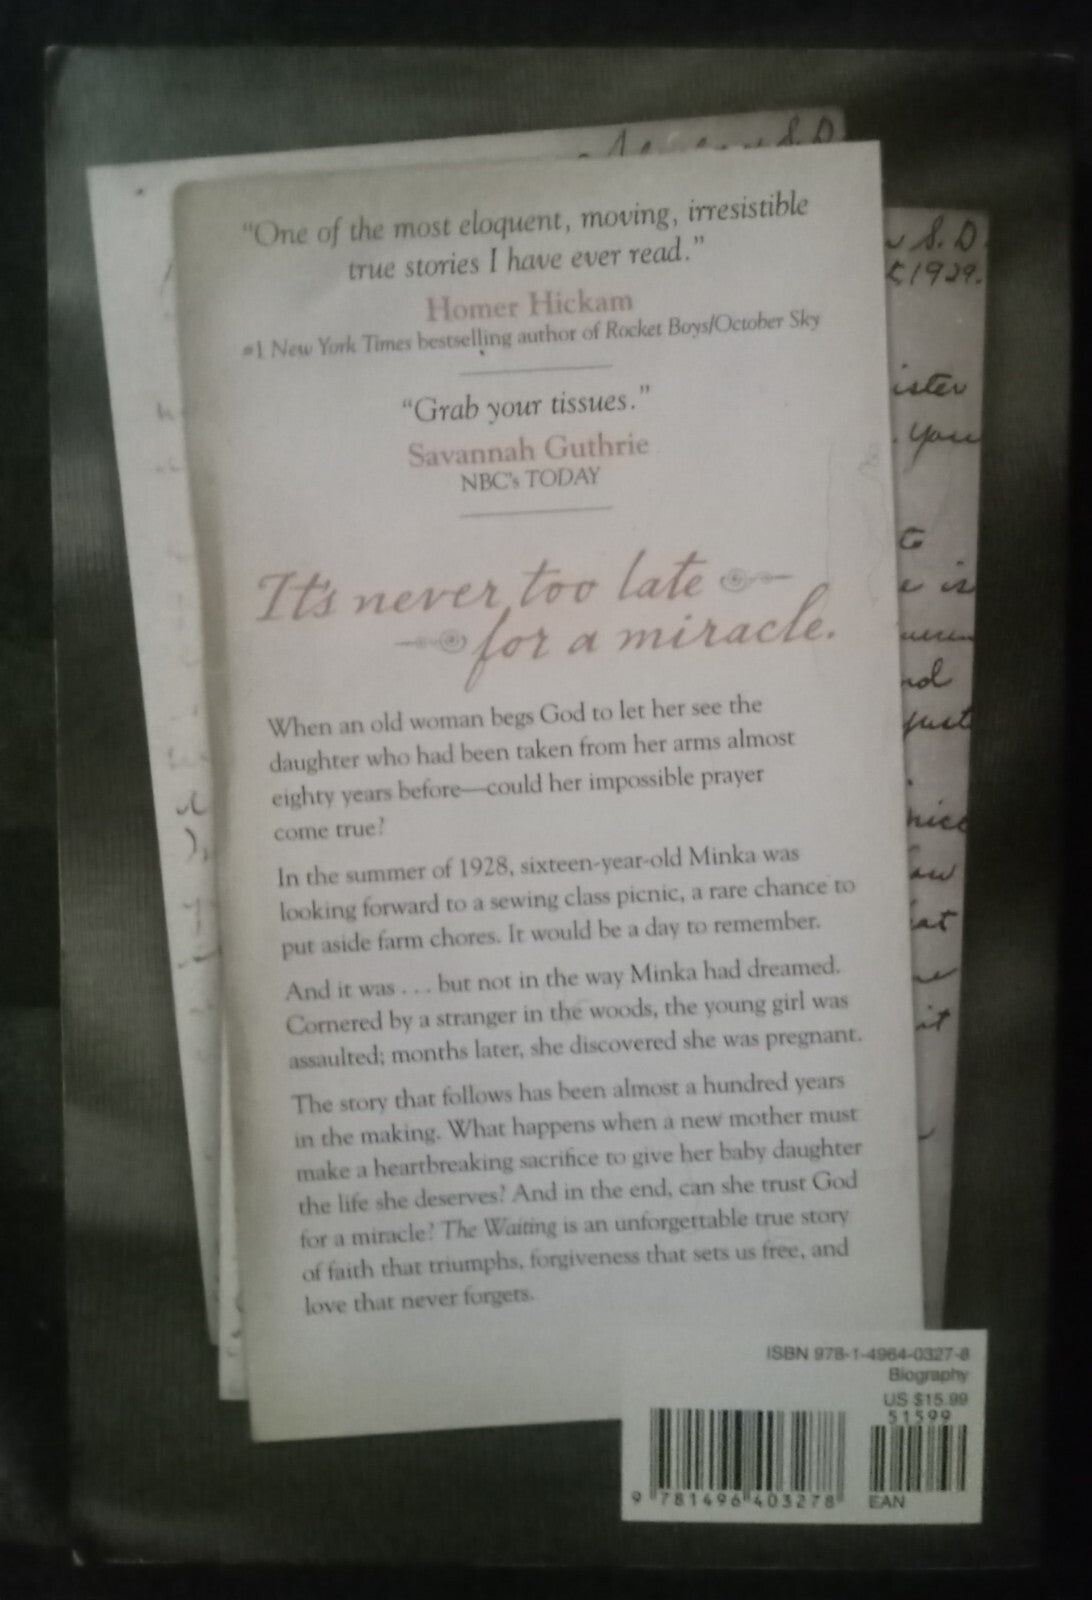 S. D.
"One of the most eloquent, moving, irresistible
true stories I have ever read."
Homer Hickam
#1 New York Times bestselling author of Rocket Boys/October Sky
"Grab your tissues."
Savannah Guthrie
NBC's TODAY
It's never too late
for a miracle.
When an old woman begs God to let her see the
daughter who had been taken from her arms almost
eighty years before—could her impossible prayer
come true?
In the summer of 1928, sixteen-year-old Minka was
looking forward to a sewing class picnic, a rare chance to
put aside farm chores. It would be a day to remember.
And it was . . . but not in the way Minka had dreamed.
Cornered by a stranger in the woods, the young girl was
assaulted; months later, she discovered she was pregnant.
The story that follows has been almost a hundred years
in the making. What happens when a new mother must
make a heartbreaking sacrifice to give her baby daughter
the life she deserves? And in the end, can she trust God
for a miracle? The Waiting is an unforgettable true story
of faith that triumphs, forgiveness that sets us free, and
love that never forgets.
S. D.
1929.
ister
you
to
is
nd
just
nice
at
it
ISBN 978-1-4964-0327-8
Biography
US $15.99
51599
9 781496 403278
EAN